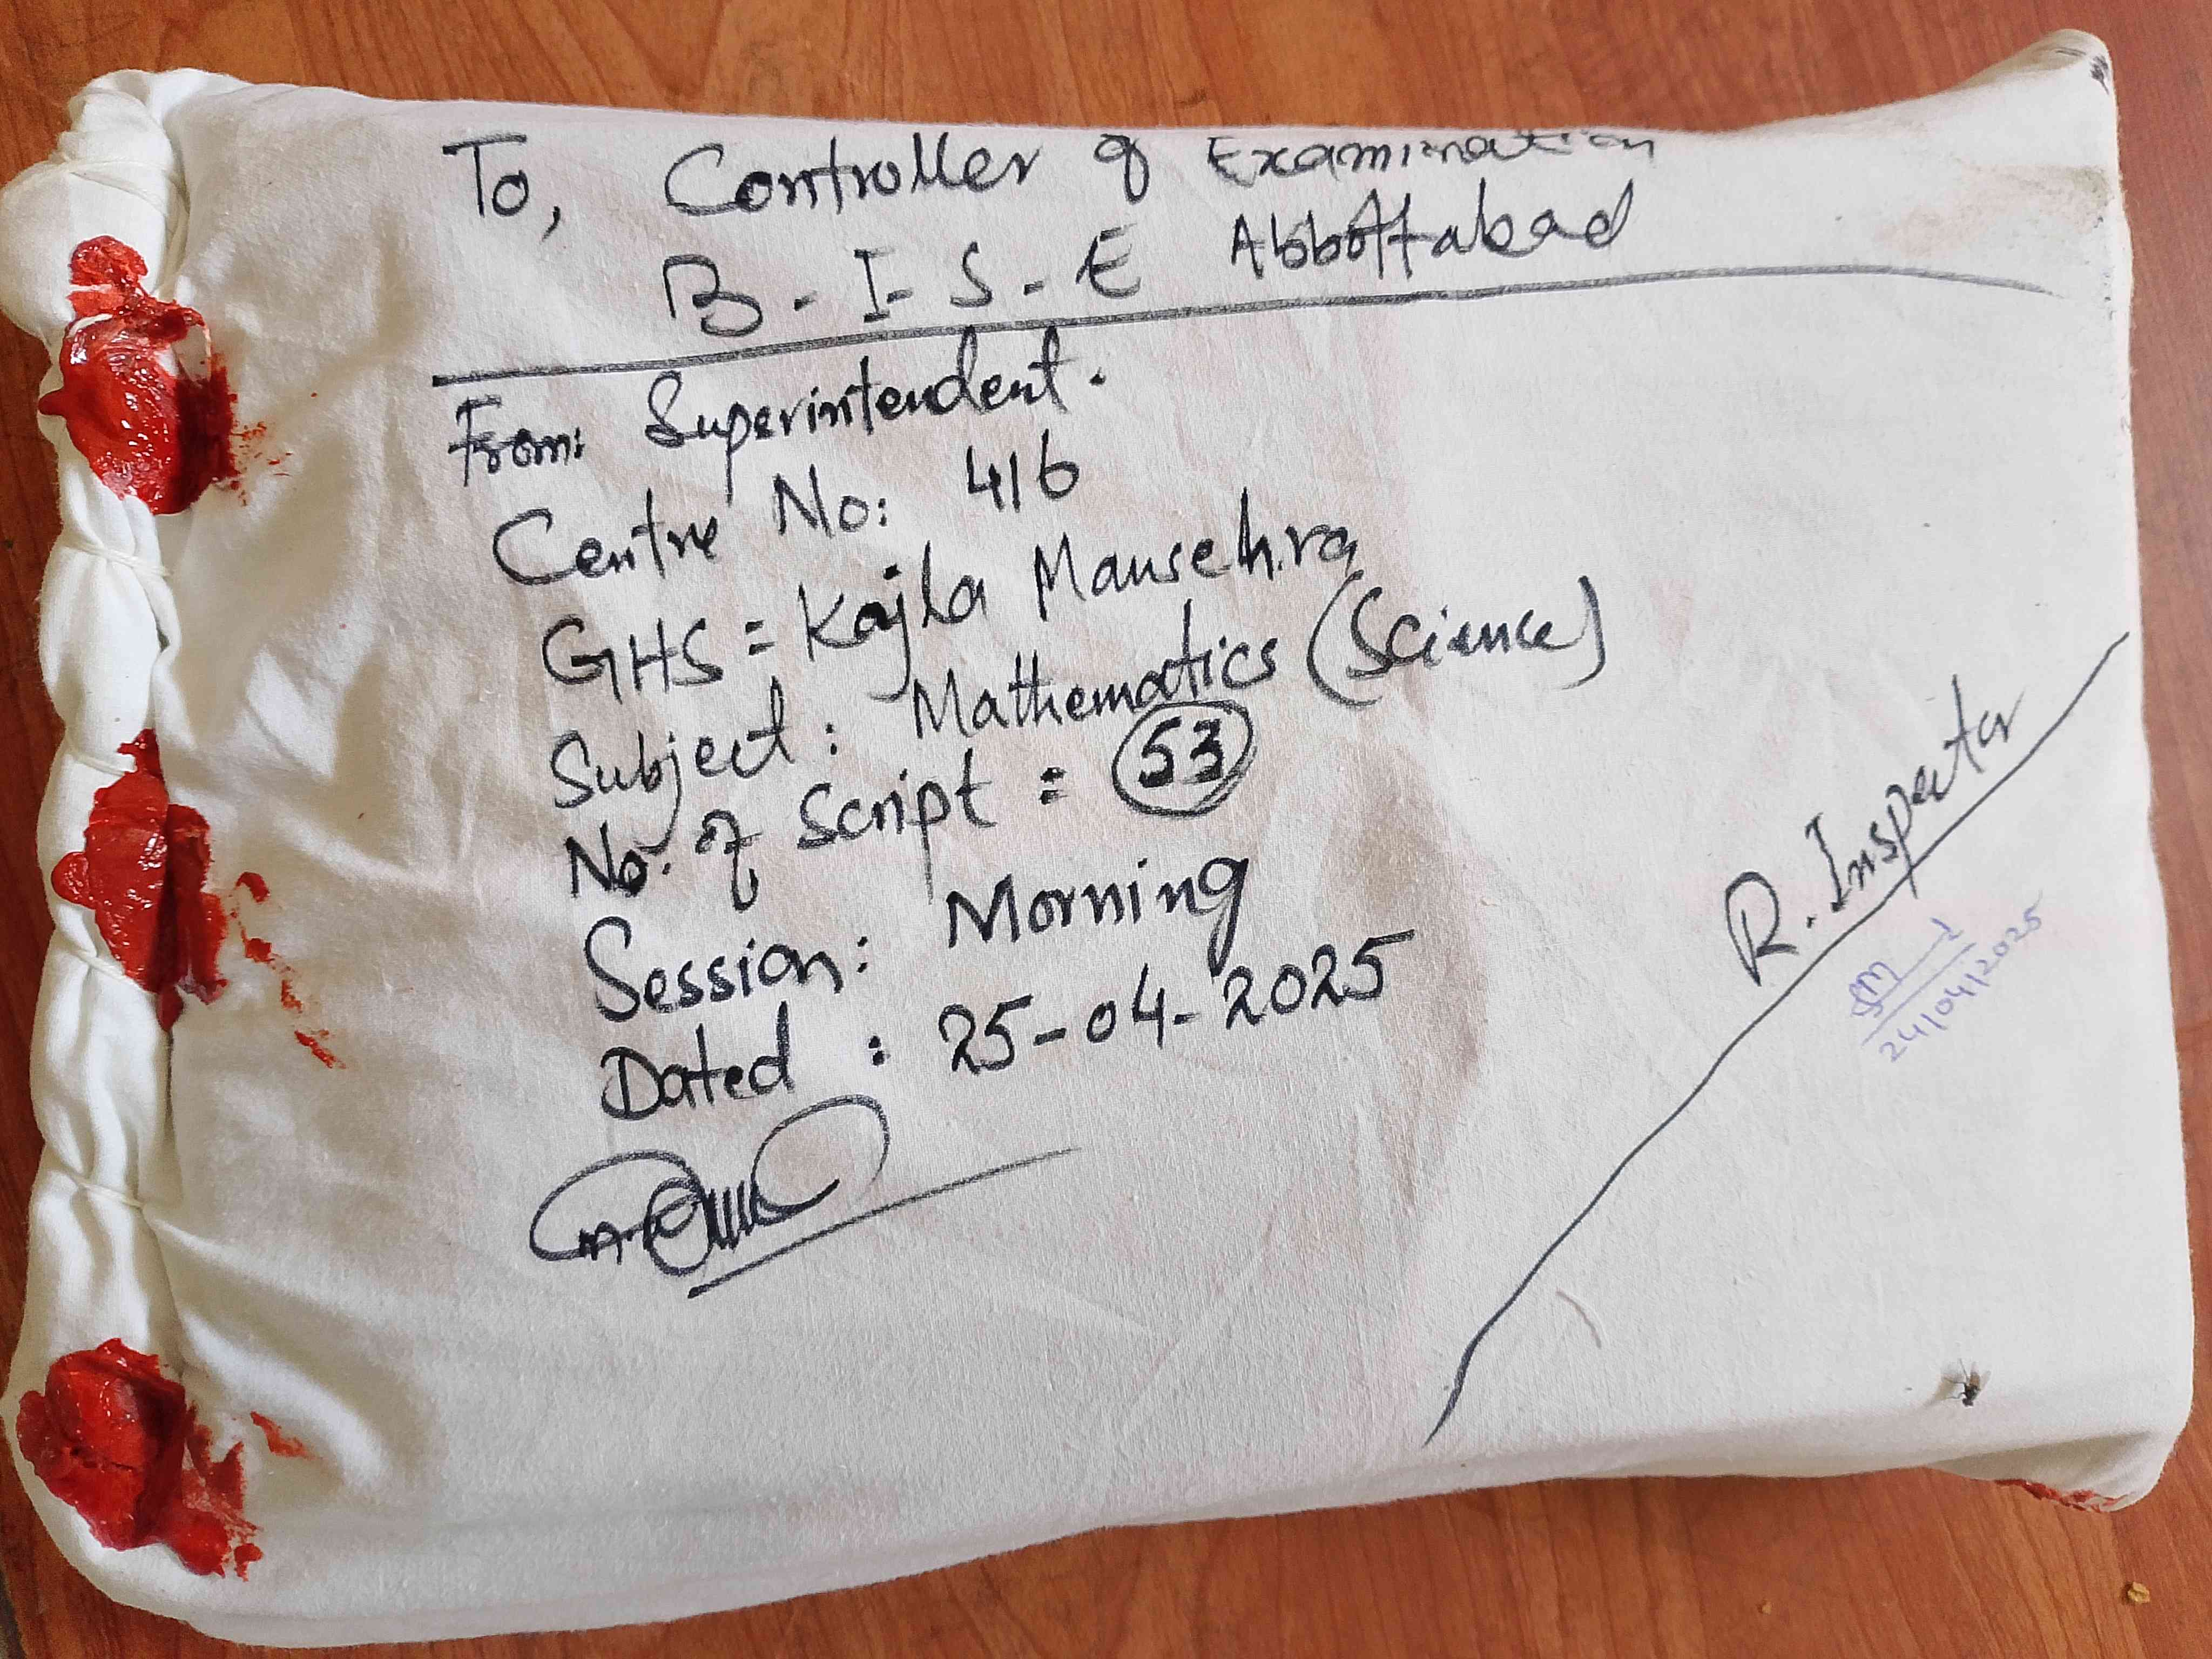 To, Controller of Examination
B-I-S-E Abbottabad
From: Superintendent.
Centre No: 416
GHS = Kajla Mansehra
Subject: Mathematics (Science)
No. of Script = 53
Session: Morning
Dated: 25-04-2025
R. Inspector
24/04/2025